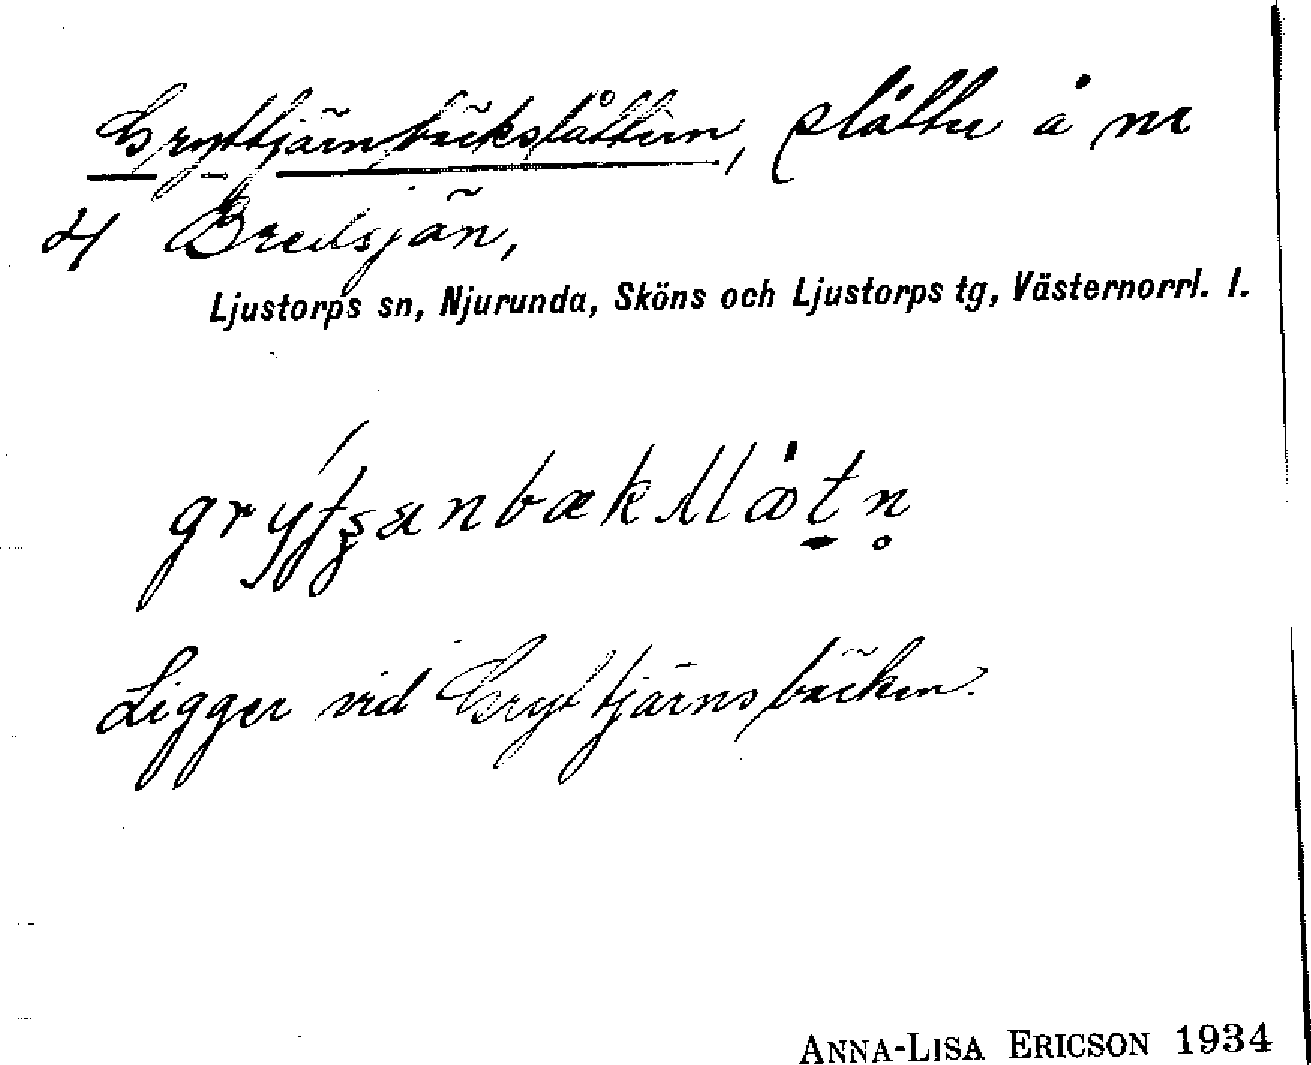 Gryttjärnbäckslåtten, slåtter å nr
4 Bredsjön,
Ljustorps sn, Njurunda, Sköns och Ljustorps tg, Västernorrl. l.
Ligger vid Gryttjärnsbäcken.
ANNA-LISA ERICSON 1934